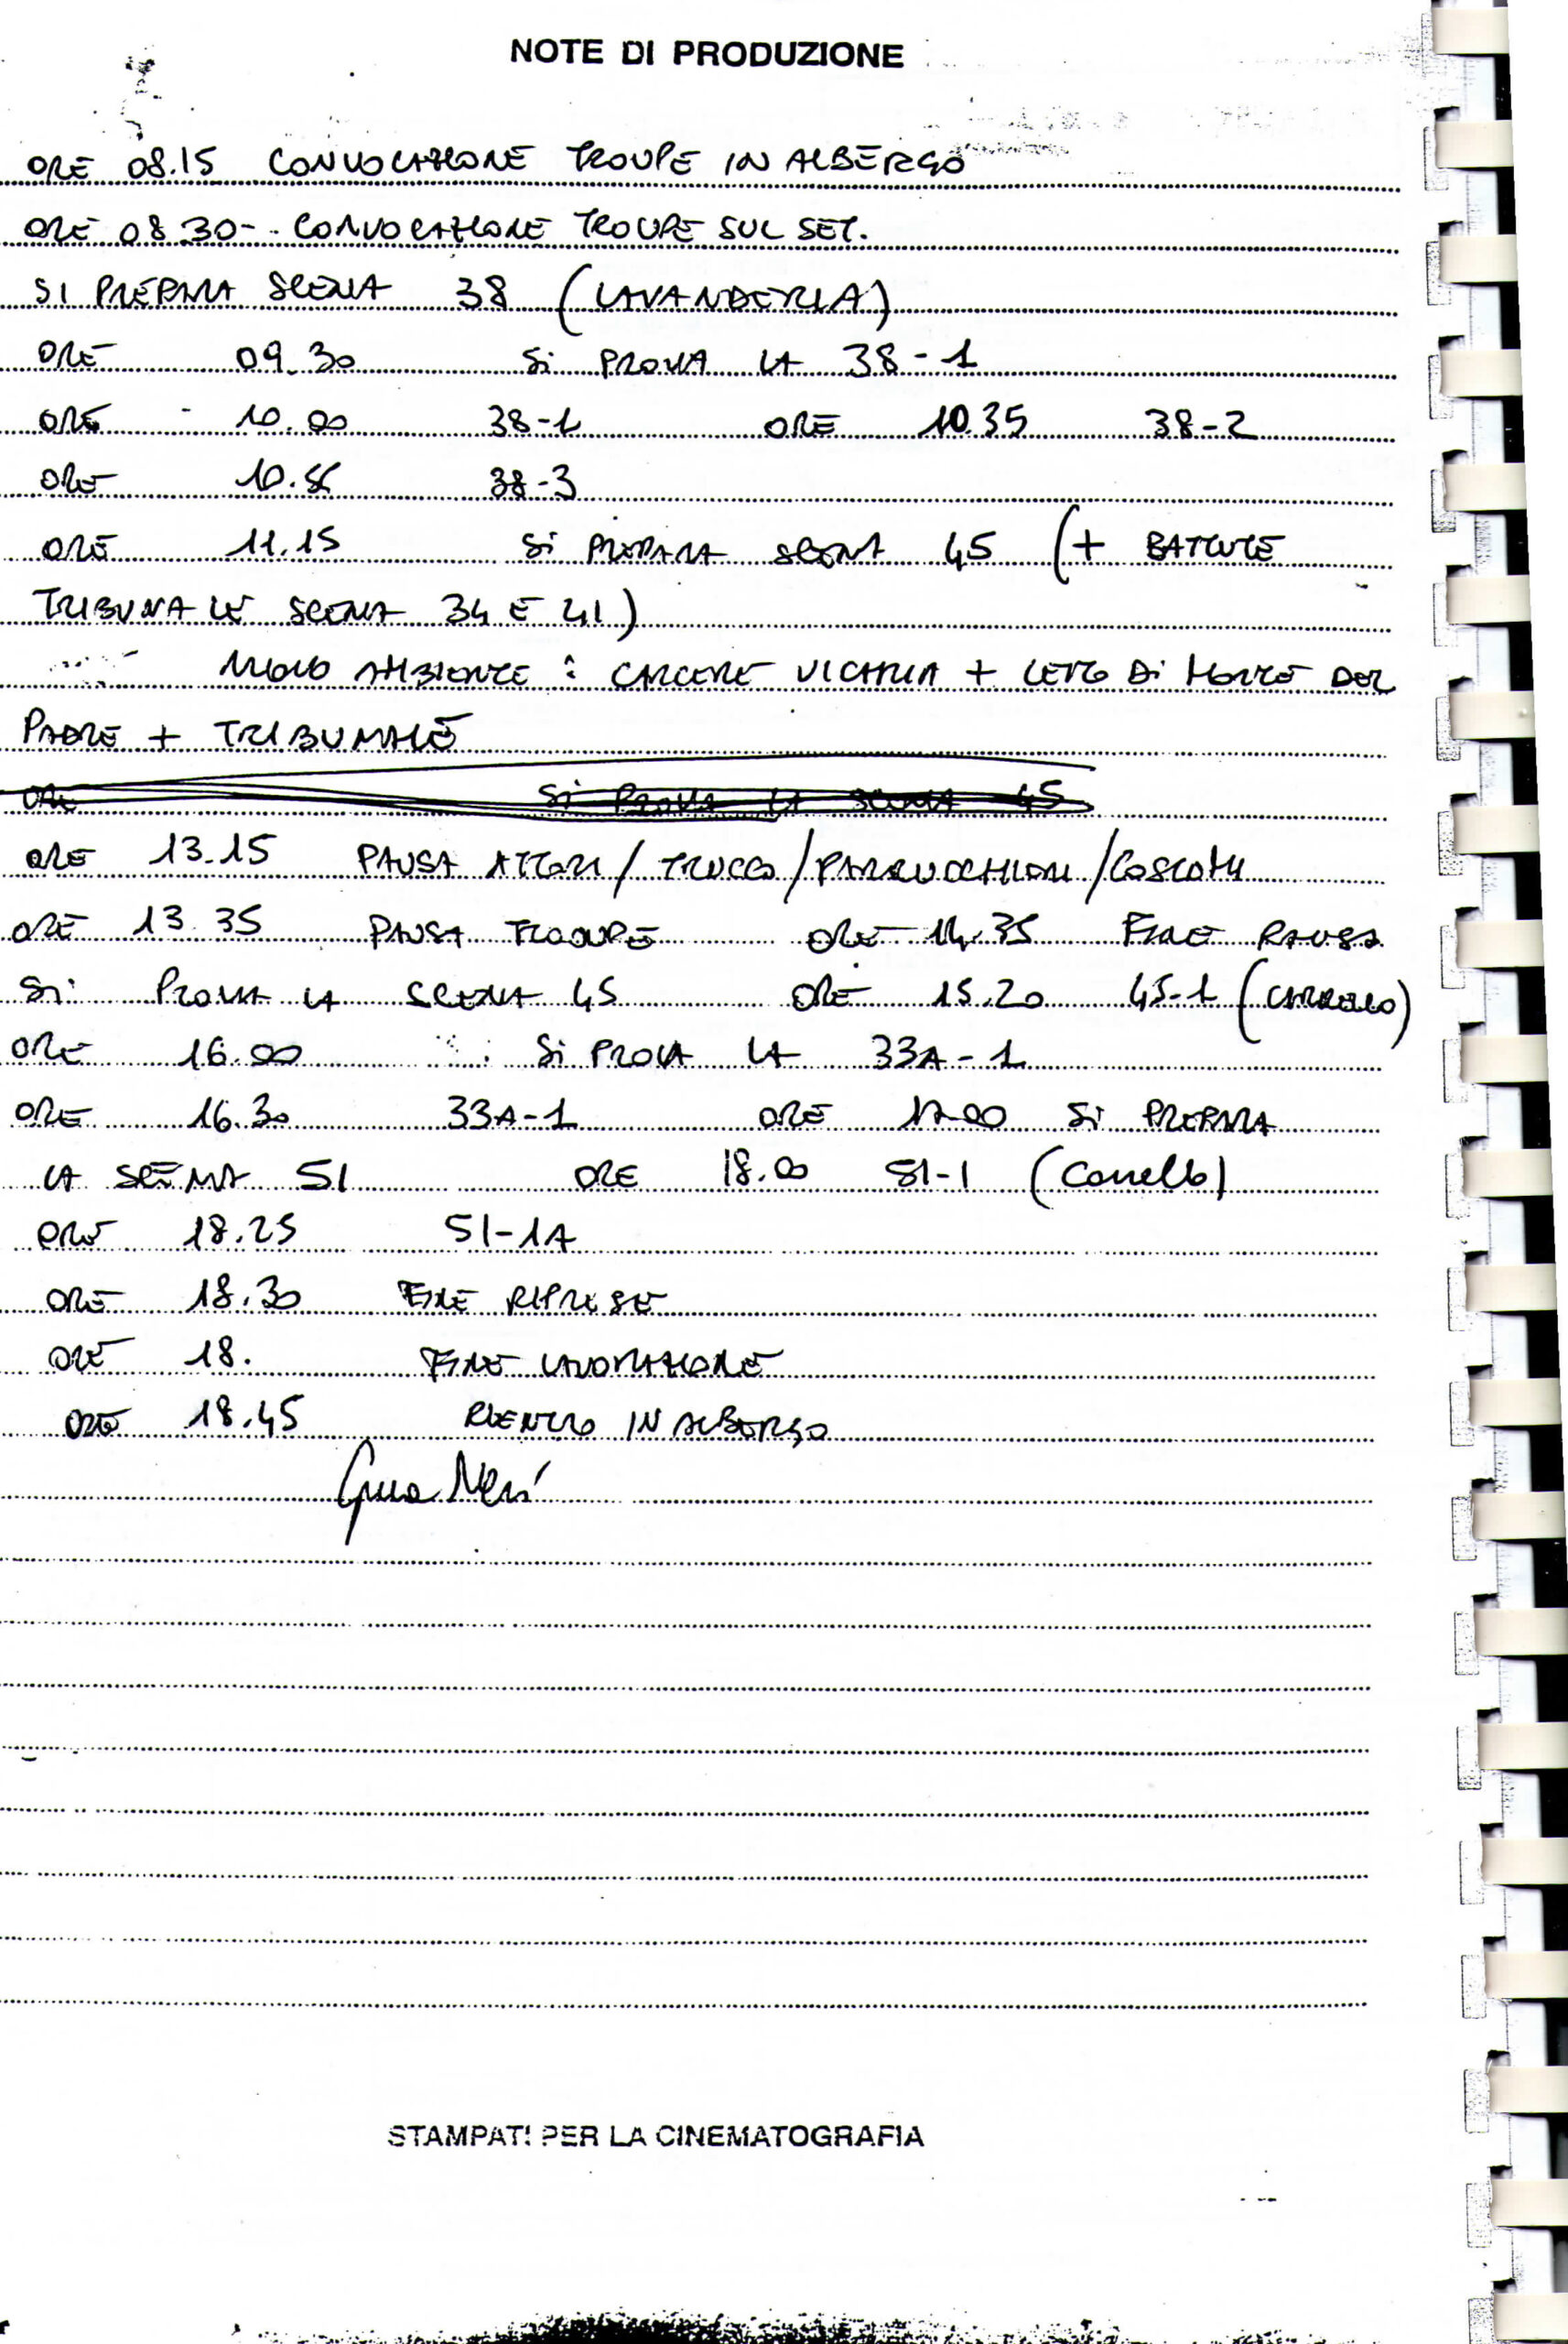 NOTE DI PRODUZIONE
ORE 08.15 CONVOCAZIONE TROUPE IN ALBERGO
ORE 08.30 - CONVOCAZIONE TROUPE SUL SET.
SI PREPARA SCENA 38 (LAVANDERIA)
ORE 09.30 Si PROVA LA 38-1
ORE 10.00 38-1 ORE 10.35 38-2
ORE 38-3
ORE 11.15 Si PREPARA SCENA 45 (+ BATTUTE
TRIBUNALE SCENA 34 E 41)
NUOVO AMBIENTE : CARCERE VICARIA + LETTO Di MORTE DEL
PADRE + TRIBUNALE
ORE Si PROVA LA SCENA 45
ORE 13.15 PAUSA ATTORI / TRUCCO / PARRUCCHIERI / COSTUMI
ORE 13.35 PAUSA TROUPE ORE 14.35 FINE PAUSA
Si PROVA LA SCENA 45 ORE 15.20 45-1 (CARRELLO)
ORE 16.00 Si PROVA LA 33A-1
ORE 16.30 33A-1 ORE 17.00 Si PREPARA
LA SCENA 51 ORE 18.00 51-1 (Carrello)
ORE 18.25 51-1A
ORE 18.30 FINE RIPRESE
ORE 18. FINE LAVORAZIONE
ORE 18.45 RIENTRO IN ALBERGO
STAMPATI PER LA CINEMATOGRAFIA